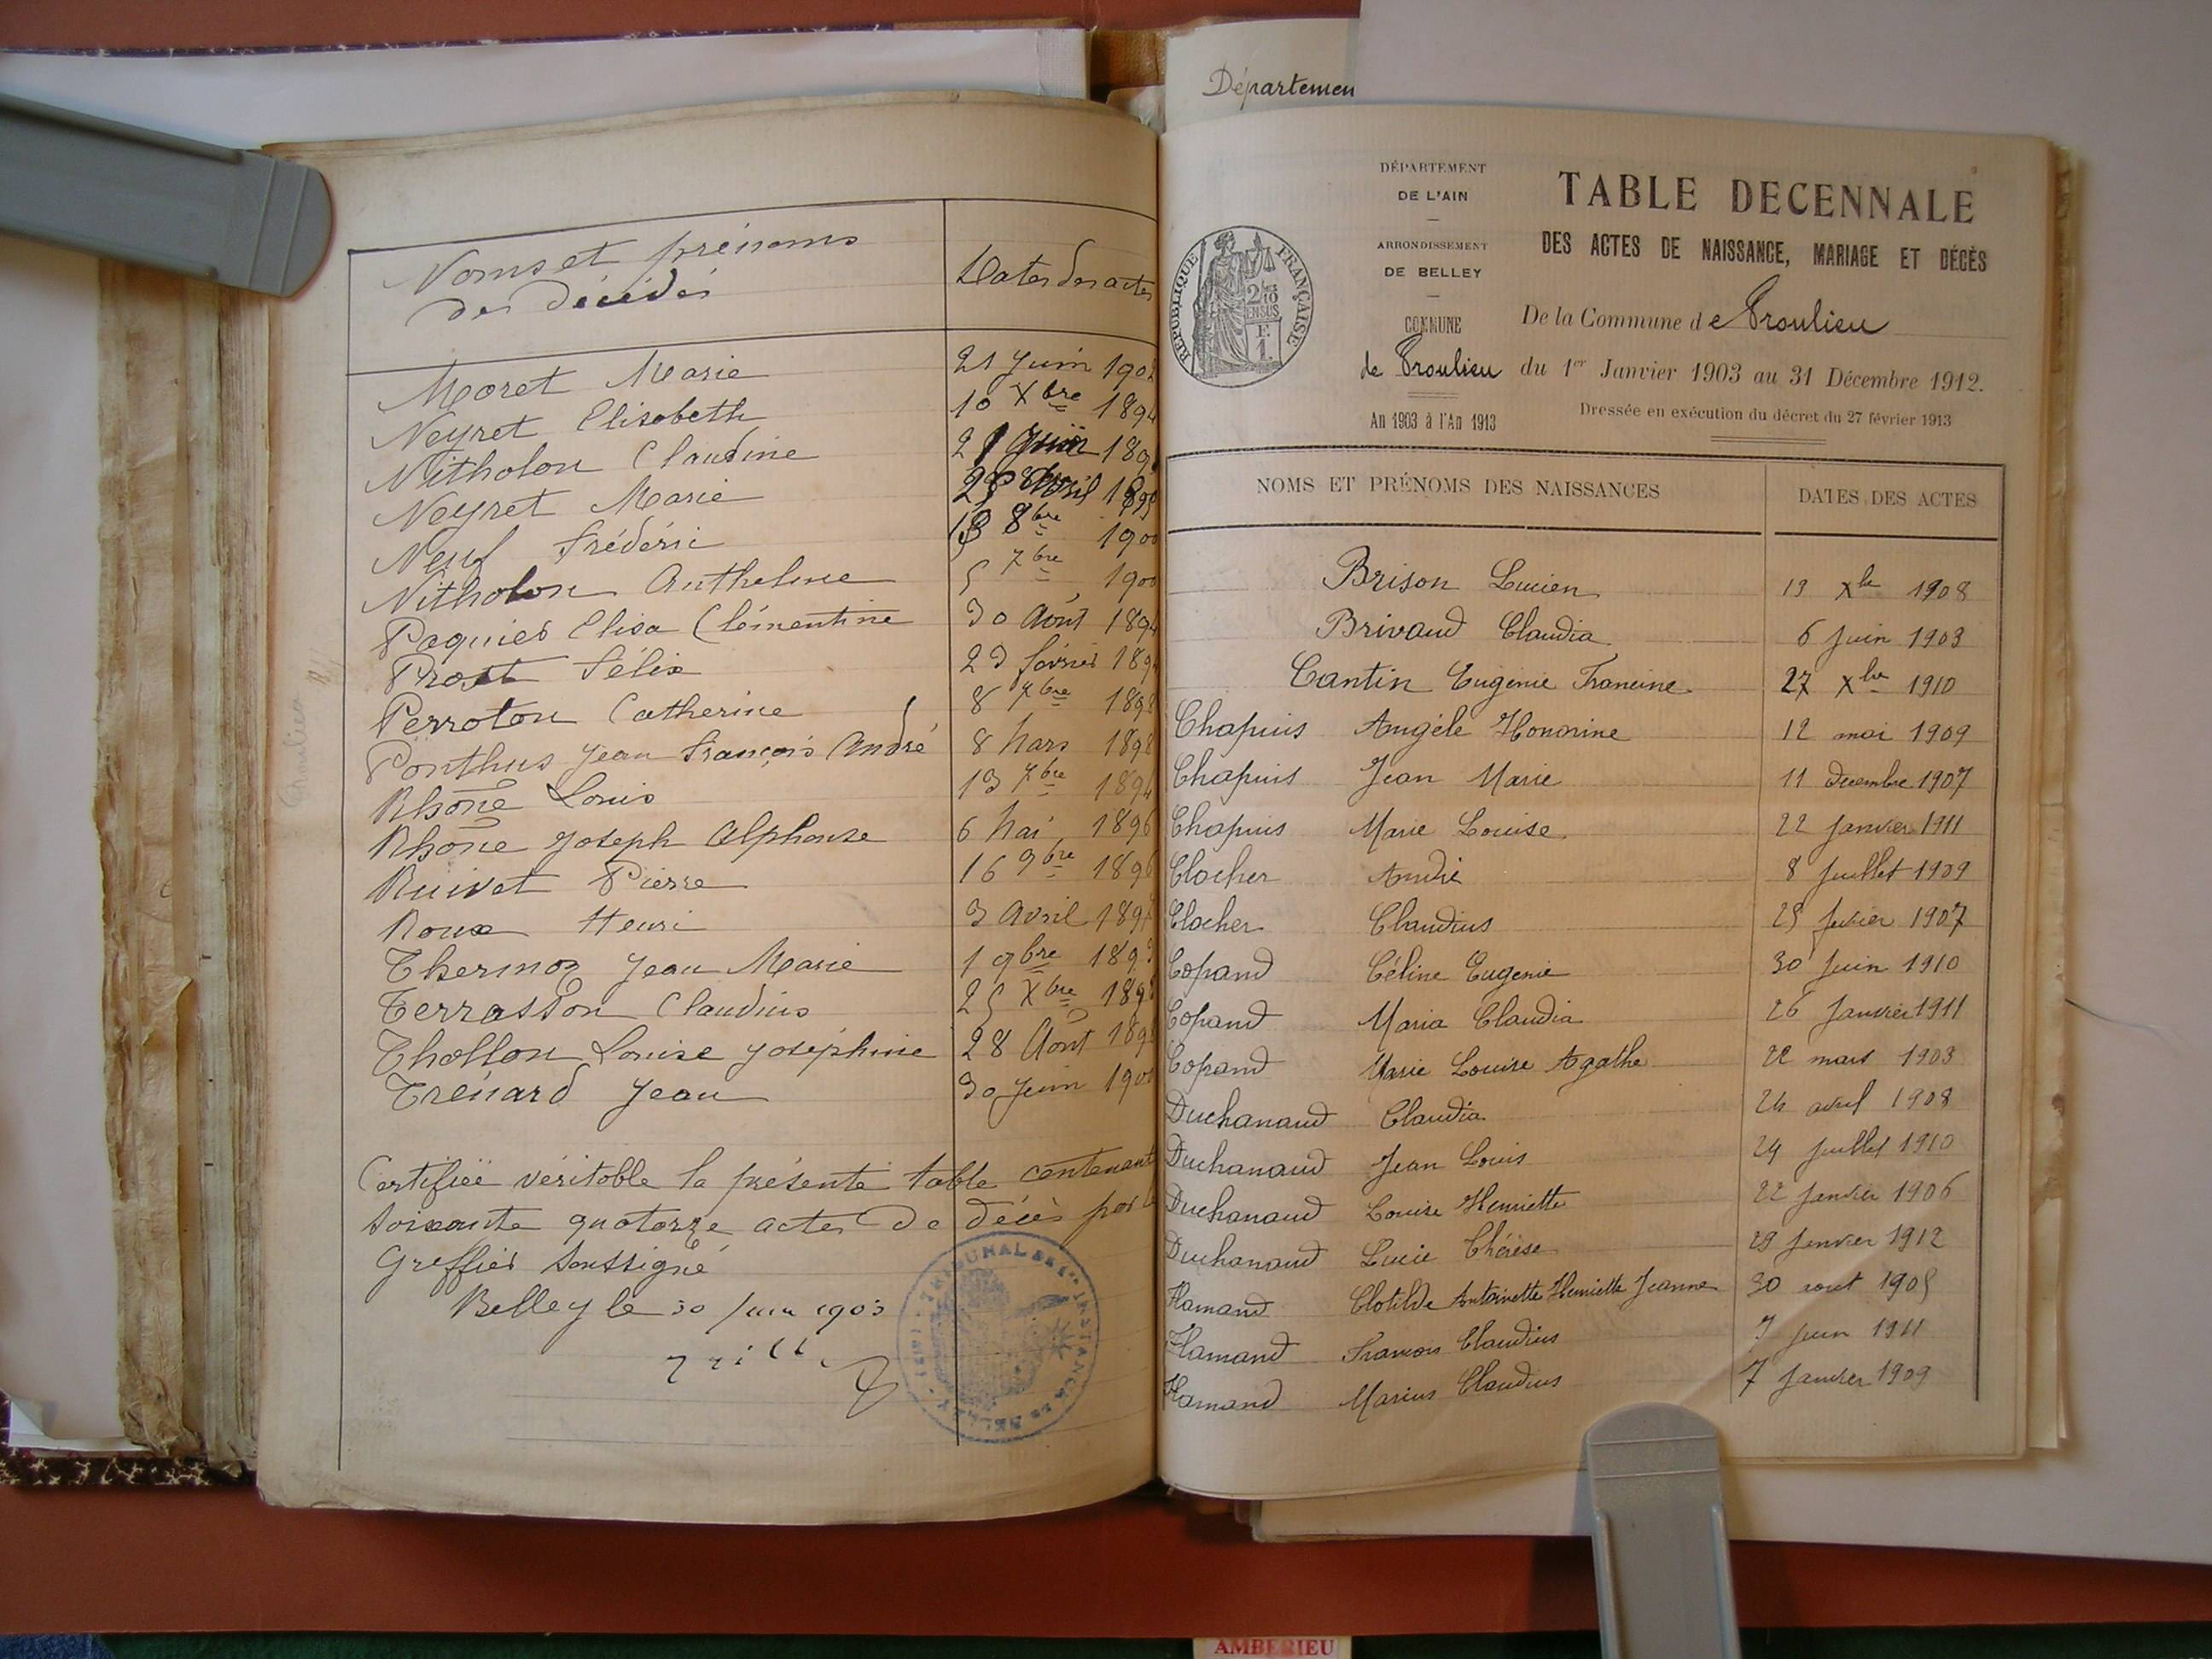 Noms et prénoms
des décédés
Dates des actes
Moret Marie 21 Juin 190
Neyret Elisabeth 10 Xbre 1894
Nitholon Claudine 2 189
Neyret Marie Avril 1895
Neuf Frédéric 18 8bre 1900
Nitholon Anthelme 5 7bre 1900
Paquier Elisa Clémentine 30 Août 1894
Prost Félix 23 février 189
Perroton Catherine 8 7bre 1898
Ponthus Jean François André 8 Mars 1898
Rhône Louis 13 7bre 1894
Rhône Joseph Alphonse 6 Mai 1896
Ruivet Pierre 16 9bre 1896
Roux Henri 3 Avril 189
Thermoz Jean Marie 1 9bre 1893
Terrasson Claudius 25 Xbre 189
Thollon Louise Joséphine 28 Août 189
Trénard Jean 30 Juin 190
Certifiée véritable la présente table contenant
soixante quatorze actes de décès par le
Greffier soussigné
Belley le 30 Juin 1903
TRIBUNAL DE 1ère INSTANCE DE BELLEY
Départemen
DÉPARTEMENT
DE L'AIN
ARRONDISSEMENT
DE BELLEY
COMMUNE
de Proulieu
An 1903 à l'An 1913
RÉPUBLIQUE FRANÇAISE
2/10 EN SUS
F.
1.
TABLE DECENNALE
DES ACTES DE NAISSANCE, MARIAGE ET DÉCÈS
De la Commune de Proulieu
du 1er Janvier 1903 au 31 Décembre 1912.
Dressée en exécution du décret du 27 février 1913
NOMS ET PRÉNOMS DES NAISSANCES DATES DES ACTES
Brison Lucien 19 Xbre 1908
Brivaud Claudia 6 Juin 1903
Cantin Eugénie Francine 27 Xbre 1910
Chapuis Angèle Honorine 12 mai 1909
Chapuis Jean Marie 11 décembre 1907
Chapuis Marie Louise 22 Janvier 1911
Clocher André 8 Juillet 1909
Clocher Claudius 25 février 1907
Copand Céline Eugénie 30 Juin 1910
Copand Maria Claudia 26 Janvier 1911
Copand Marie Louise Agathe 22 mars 1903
Duchanaud Claudia 24 avril 1908
Duchanaud Jean Louis 24 Juillet 1910
Duchanaud Louise Henriette 22 Janvier 1906
Duchanaud Lucie Thérèse 29 Janvier 1912
Hamand Clotilde Antoinette Henriette Jeanne 30 aout 1905
Hamand François Claudius 7 Juin 1911
Hamand Marius Claudius 7 Janvier 1909
AMBERIEU